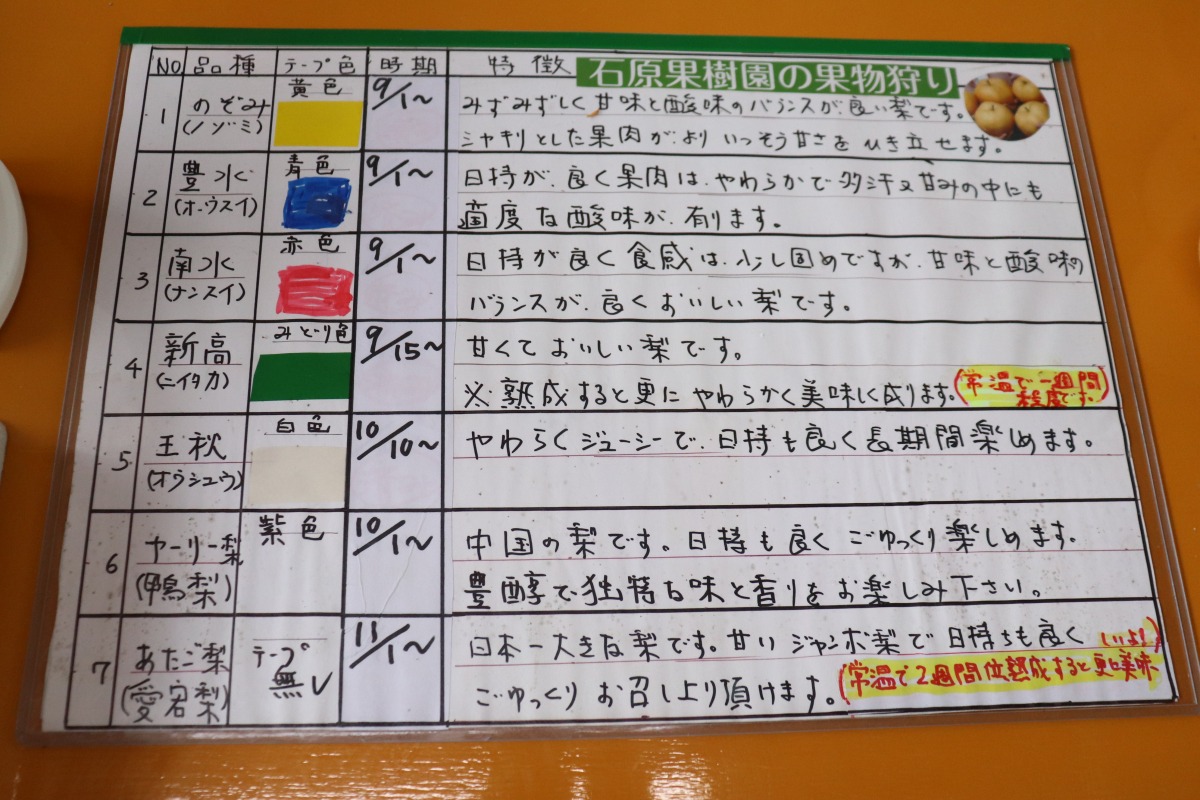 NO 品種 テープ色 時期 特徴 石原果樹園の果物狩り
1 のぞみ (ノゾミ) 黄色 9/1〜 みずみずしく甘味と酸味のバランスが良い梨です。
シャキリとした果肉がよりいっそう甘さをひき立せます。
2 豊水 (ホウスイ) 青色 9/1〜 日持が良く果肉はやわらかで多汁又甘みの中にも
適度な酸味が有ります。
3 南水 (ナンスイ) 赤色 9/1〜 日持が良く食感は少し固めですが、甘味と酸味の
バランスが良くおいしい梨です。
4 新高 (ニイタカ) みどり色 9/15〜 甘くておいしい梨です。
※熟成すると更にやわらかく美味しく成ります。(常温で一週間
程度です。)
5 王秋 (オウシュウ) 白色 10/10〜 やわらくジューシーで、日持も良く長期間楽しめます。
6 ヤーリー梨 (鴨梨) 紫色 10/1〜 中国の梨です。日持も良くごゆっくり楽しめます。
豊醇で独特な味と香りをお楽しみ下さい。
7 あたご梨 (愛宕梨) テープ無し 11/1〜 日本一大きな梨です。甘いジャンボ梨で日持ちも良く
ごゆっくりお召し上り頂けます。(常温で2週間位熟成すると更に美味
しいよ!)